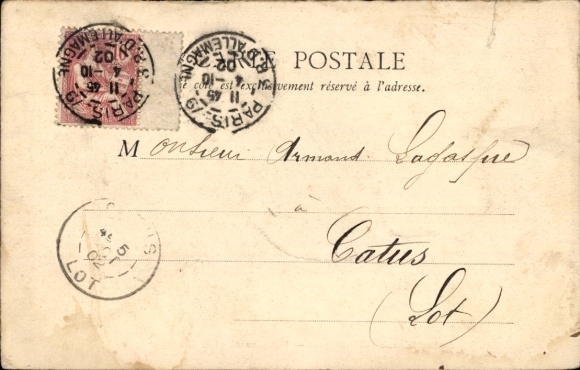 E POSTALE
e côté est exclusivement réservé à l'adresse.
PARIS-19
R. D'ALLEMAGNE
11 45
4 -10
02
PARIS-19
R. D'ALLEMAGNE
11 45
4 -10
02
Monsieur Armand Lagaspie
à
Catus
(Lot)
5
02
LOT